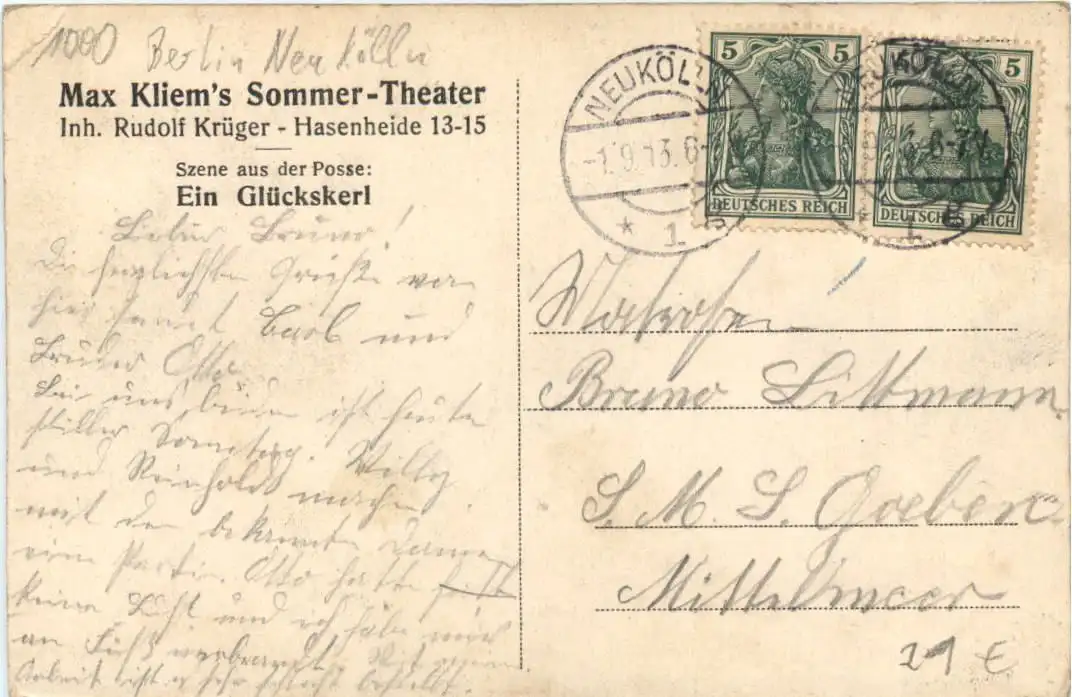 1000 Berlin Neukölln
Max Kliem's Sommer-Theater
Inh. Rudolf Krüger - Hasenheide 13-15
Szene aus der Posse:
Ein Glückskerl
Lieber Bruno!
Die herzlichsten Grüße von
hier sendet Carl und
Bruder Otto.
Bei uns ist heute
stiller Sonntag. Willy
und Reinhold machen
mit den bekannten Damen
eine Partie. Otto hatte
keine Lust und ich habe mir
an Fuß verbrannt. Mit
Arbeit ist es sehr schlecht bestellt.
NEUKÖLLN
-1.9.13.6-
* 1
5 5
DEUTSCHES REICH
NEUKÖLLN
6-7N
1
5
DEUTSCHES REICH
Matrosen
Bruno Littmann
S. M. S. Goeben
Mittelmeer
€